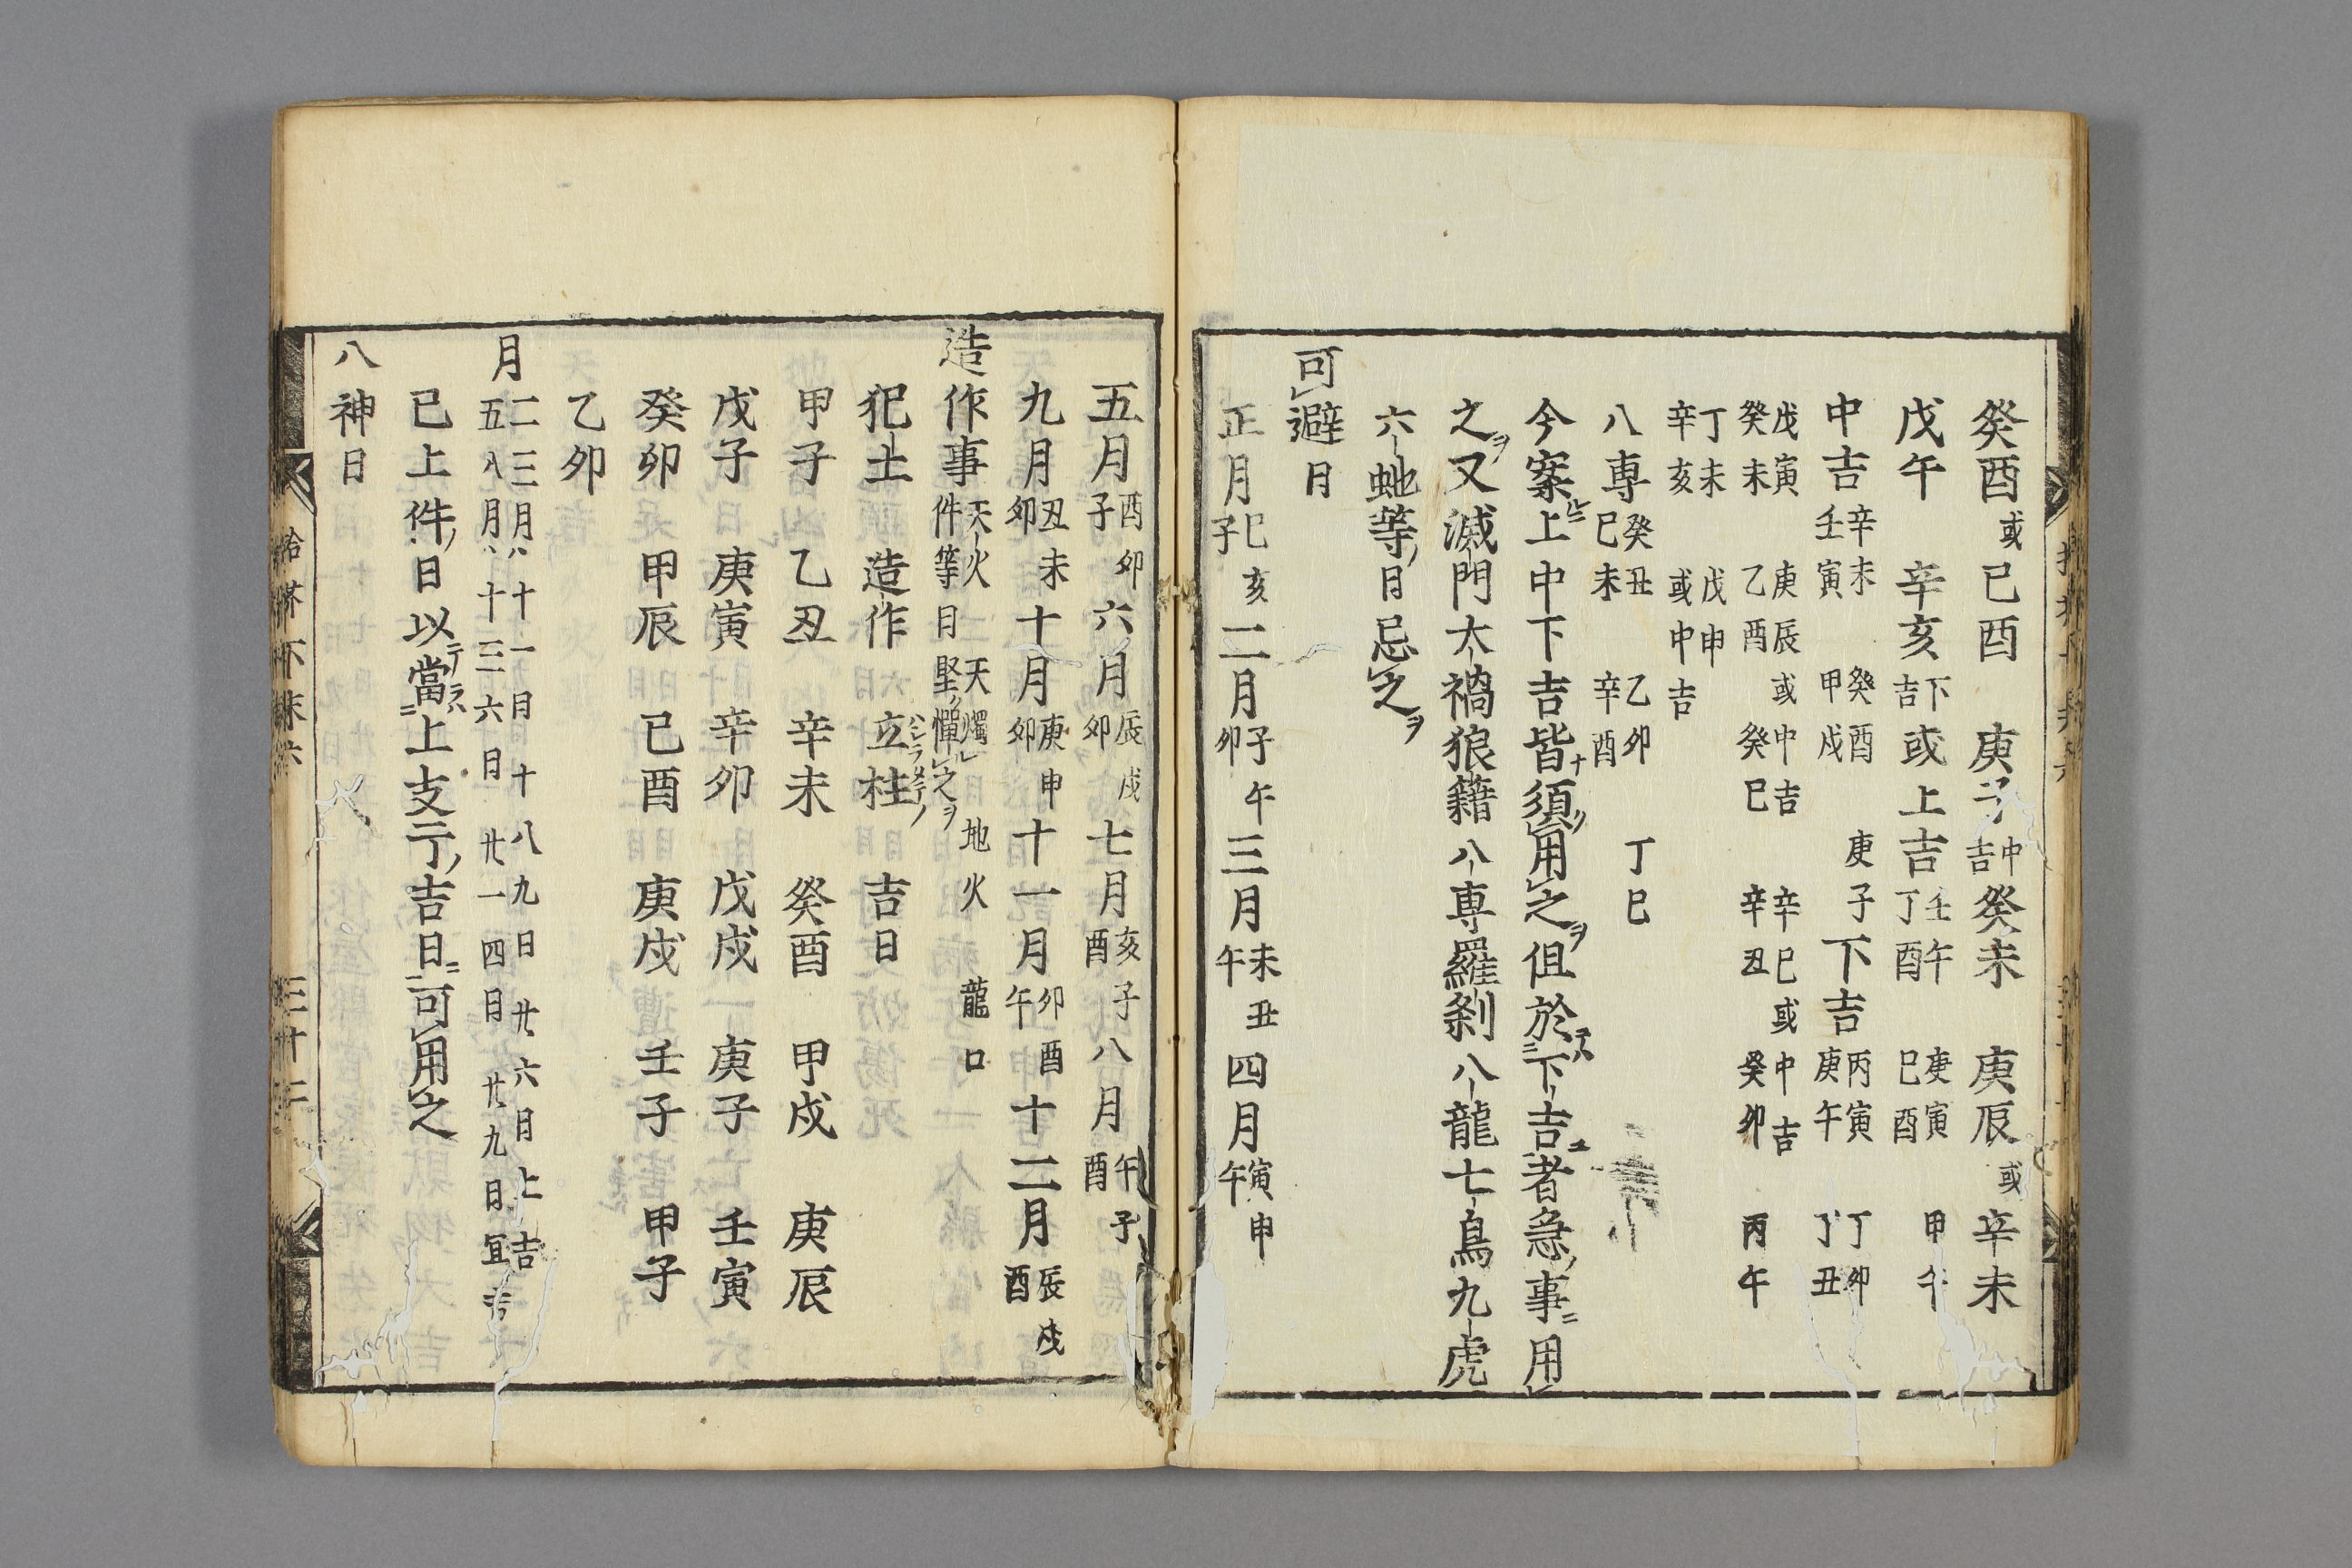 癸酉或己酉 庚子中吉癸未 庚辰或辛未
戊午 辛亥下吉或上吉壬午丁酉 庚寅己酉 甲午
中吉辛未壬寅 癸酉甲戌 庚子下吉丙寅庚午 丁卯丁丑
戊寅 庚辰或中吉 辛巳或中吉
癸未 乙酉 癸巳 辛丑 癸卯 丙午
丁未 戊申
辛亥 或中吉
八専癸丑己未 乙卯辛酉 丁巳
今案上中下吉皆須用之ヲ但於下吉者急事ニ用
之ヲ又滅門太禍狼籍八専羅刹八龍七鳥九虎
六虵等日忌之ヲ
可避日
正月巳亥子二月子午卯三月未丑午四月寅申午
五月酉卯子六月辰戌卯七月亥子酉八月午子酉
九月丑未卯十月庚申卯十一月卯酉午十二月辰戌酉
造作事天火 天燭 地火 龍口
件等日堅憚之ヲ
犯土 造作 立柱ハシラタテノ 吉日
甲子 乙丑 辛未 癸酉 甲戌 庚辰
戊子 庚寅 辛卯 戊戌 庚子 壬寅
癸卯 甲辰 己酉 庚戌 壬子 甲子
乙卯
月二三月ハ十一日十八九日廿六日上吉
五八月ハ十三六日廿一四日廿九日宜吉
已上件日以當上支干吉日ニ可用之
八神日
三十二